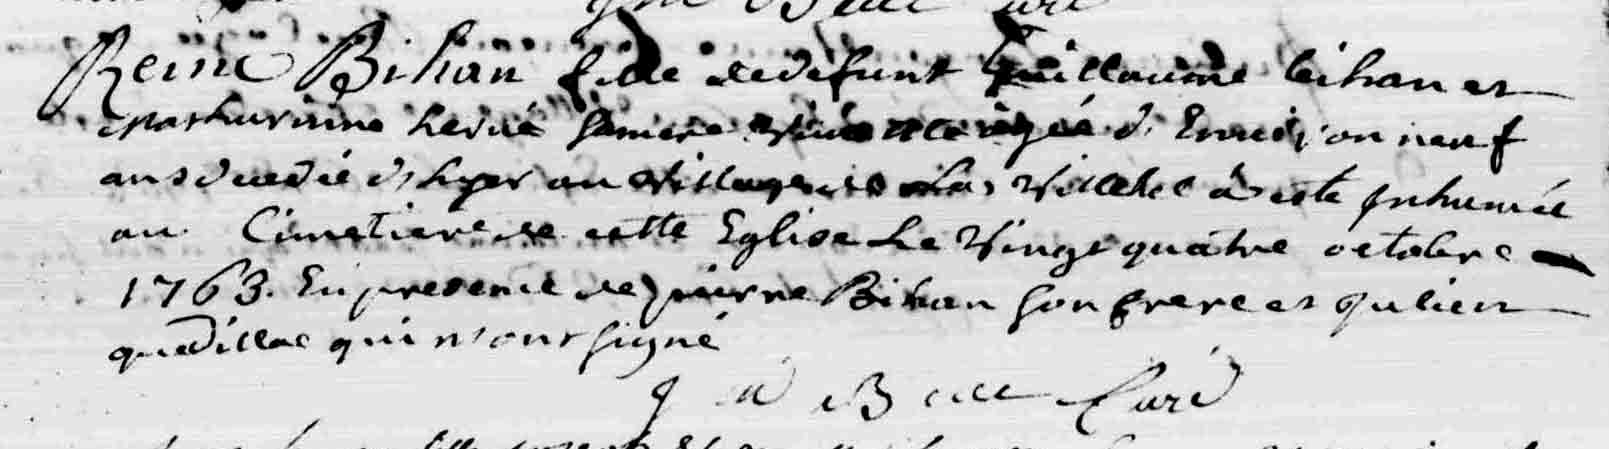 Reine Bihan fille de defunt Guillaume bihan et
Mathurinne hervé Samere agée d'Environ neuf
ans decedée d'hyer au Village de la Villehe à esté Inhumée
au Cimetiere de cette Eglise Le Vingt quatre octobre
1763. En presence de pierre Bihan Son frere et Julien
quedillac qui n'ont Signé
J M Curé